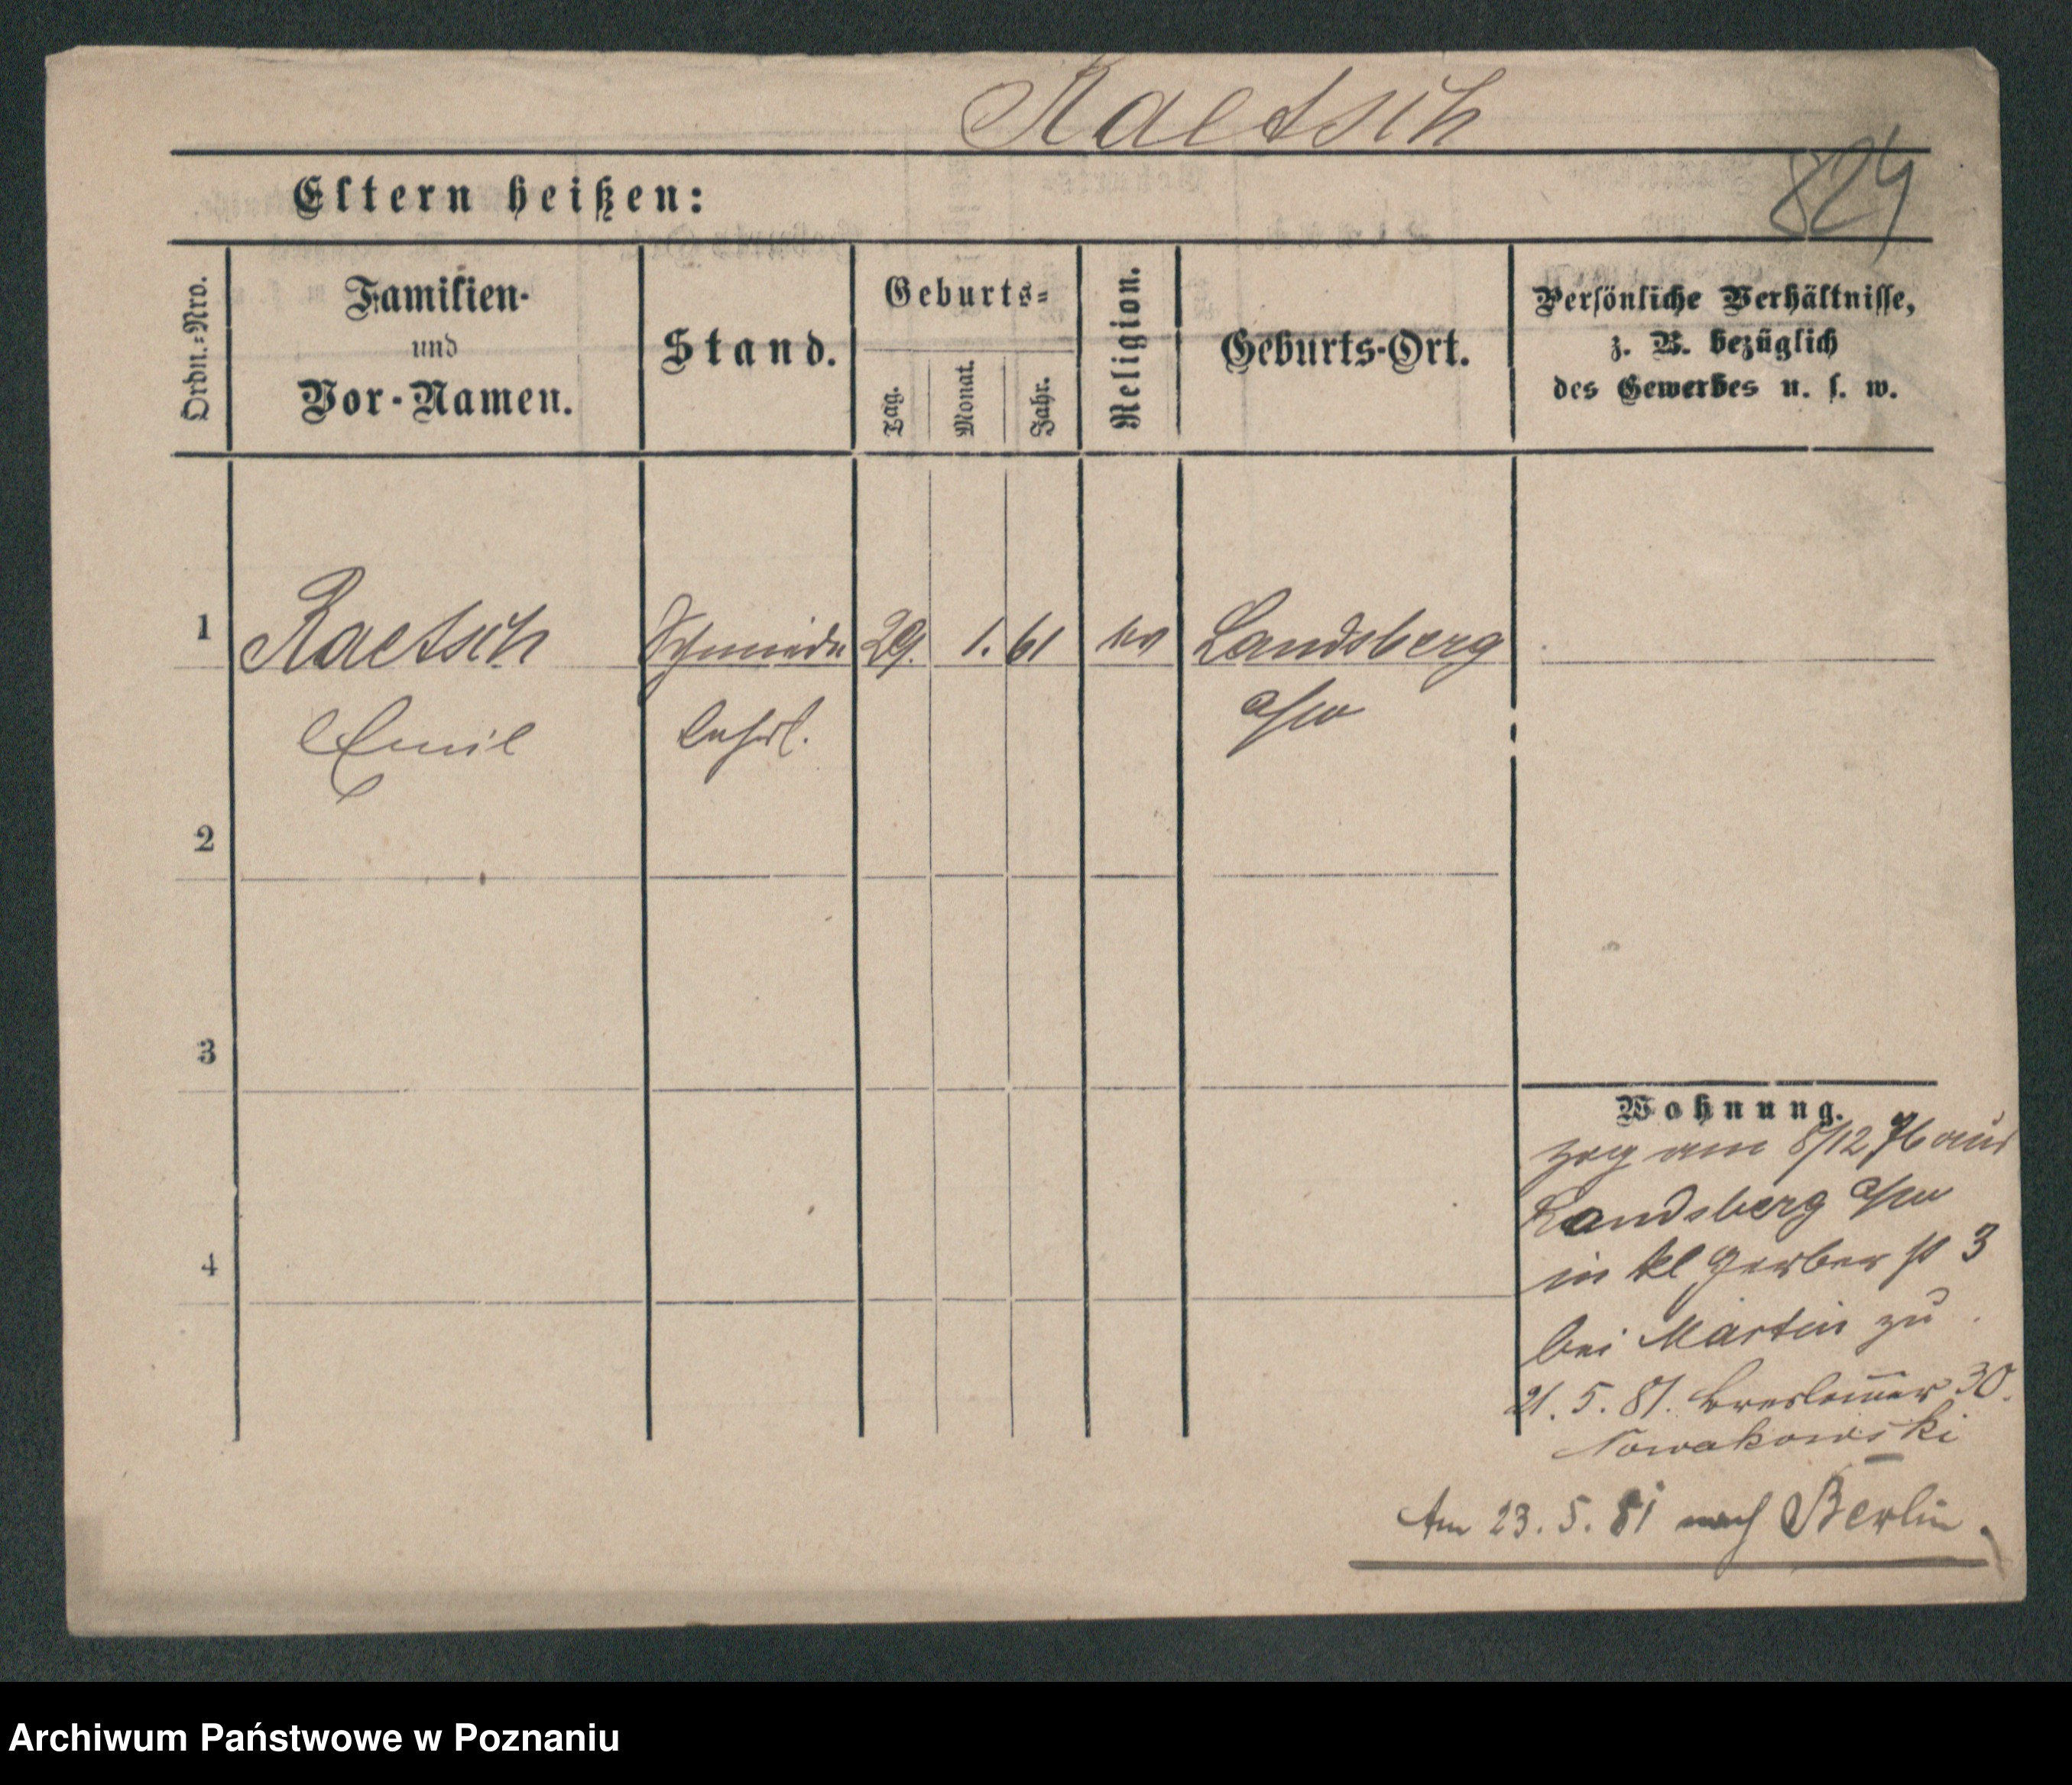 Raetsch
824
Eltern heißen:
Ordn.=Nro.
Familien-
und
Vor-Namen.
Stand.
Geburts=
Tag.
Monat.
Jahr.
Religion.
Geburts-Ort.
Persönliche Verhältnisse,
z. B. bezüglich
des Gewerbes u. s. w.
1
Raetsch
Schmiede
29. 1. 61
ev
Landsberg
Emil
Lehrl.
a/W
2
3
4
Wohnung.
zog am 8/12 76 aus
Landsberg a/W
in kl Gerber st 3
bei Martin zu
21. 5. 81. Breslauer 30.
Nowakowski
Am 23. 5. 81 nach Berlin.
Archiwum Państwowe w Poznaniu